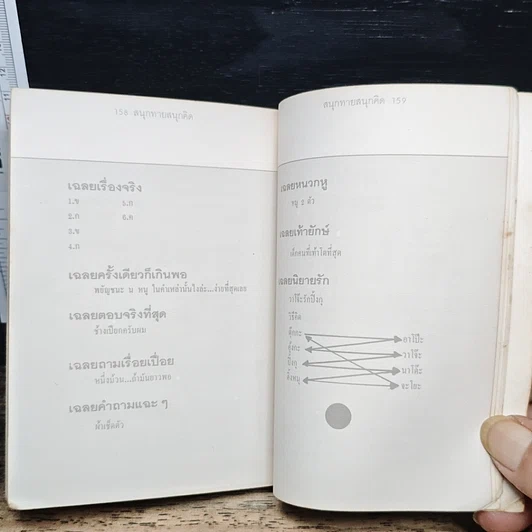 158 สนุกทายสนุกคิด
เฉลยเรื่องจริง
1.ข 5.ก
2.ก 6.ค
3.ข
4.ก
เฉลยครั้งเดียวก็เกินพอ
พยัญชนะ น หนู ในคำเหล่านั้นไงล่ะ...ง่ายที่สุดเลย
เฉลยตอบจริงที่สุด
ช้างเปียกครับผม
เฉลยถามเรื่อยเปื่อย
หนึ่งม้วน...ถ้ามันยาวพอ
เฉลยคำถามแฉะ ๆ
ผ้าเช็ดตัว
สนุกทายสนุกคิด 159
เฉลยหนวกหู
หนู 2 ตัว
เฉลยเท้ายักษ์
เด็กคนที่เท้าโตที่สุด
เฉลยนิยายรัก
วาโจ๊ะรักปิ๊งกุ
วิธีคิด
ตุ๊กกะ
กุ๋งกะ
ปิ๊งกุ
ติ๋งหนู
อาโป๊ะ
วาโจ๊ะ
นาโต๊ะ
จะโยะ